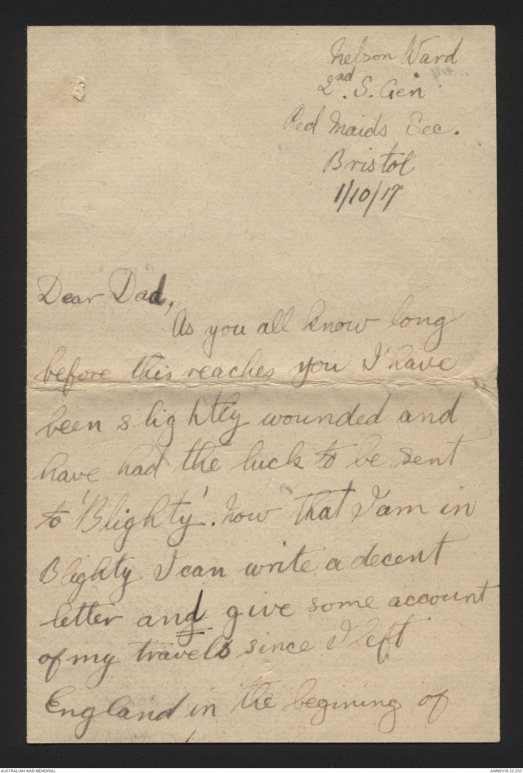 Nelson Ward
2nd. S. Gen
Red Maids Sec.
Bristol
1/10/17
Dear Dad,
As you all know long
before this reaches you I have
been slightly wounded and
have had the luck to be sent
to 'Blighty'. Now that I am in
Blighty I can write a decent
letter and give some account
of my travels since I left
England in the begining of
AUSTRALIAN WAR MEMORIAL